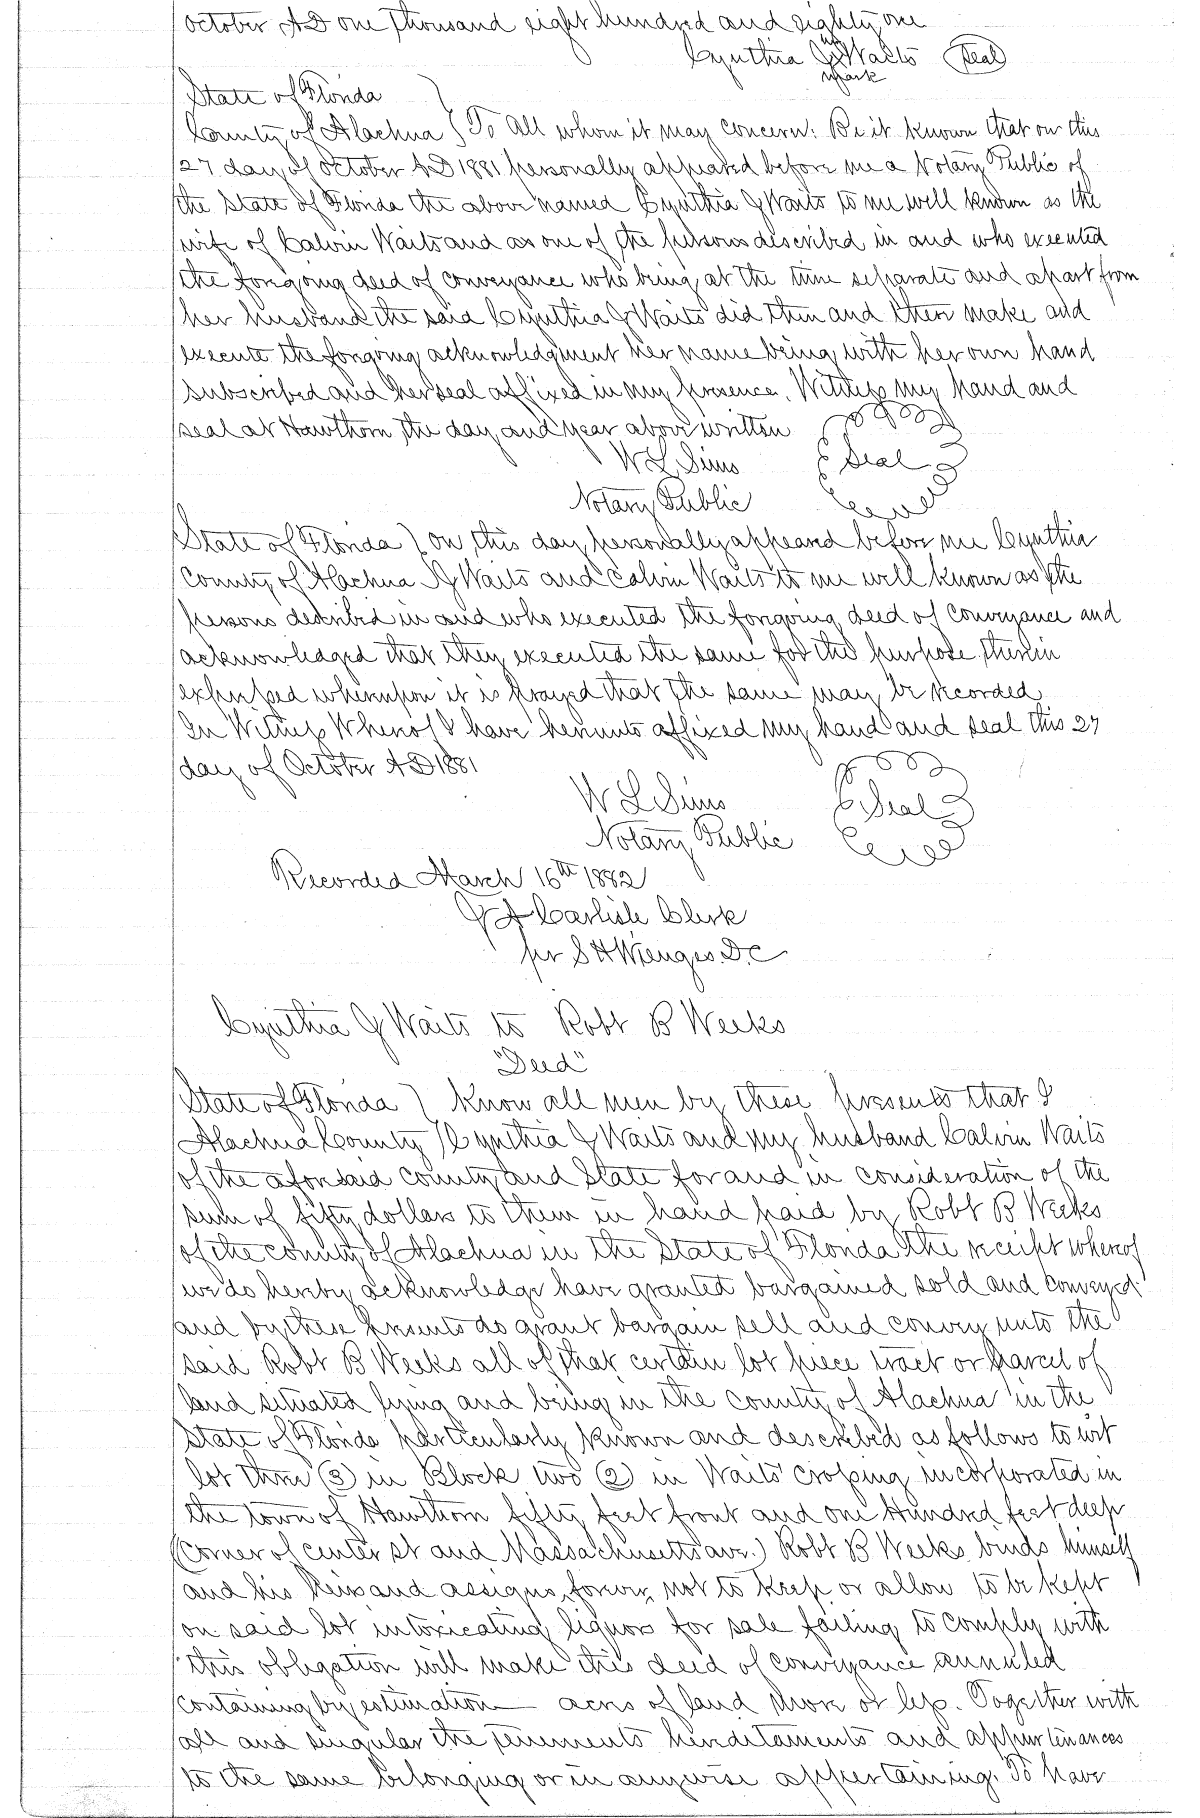 October AD one thousand eight hundred and eighty one
her
Cynthia J X Waits Seal
mark
State of Florida
County of Alachua } To All whom it may concern: Be it known that on this
27 day of October AD 1881 personally appeared before me a Notary Public of
the State of Florida the above named Cynthia J Waits to me well known as the
wife of Calvin Waits and as one of the persons described in and who executed
the forgoing deed of conveyance who being at the time separate and apart from
her husband the said Cynthia J Waits did then and there make and
execute the forgoing acknowledgment her name being with her own hand
subscribed and her seal affixed in my presence. Witness my hand and
seal at Hawthorn the day and year above written
W L Sims Seal
Notary Public
State of Florida } on this day personally appeared before me Cynthia
County of Alachua J Waits and Calvin Waits to me well known as the
persons described in and who executed the forgoing deed of conveyance and
acknowledged that they executed the same for the purpose therein
expressed whereupon it is prayed that the same may be recorded
In Witness Whereof I have hereunto affixed my hand and seal this 27
day of October AD 1881
W L Sims Seal
Notary Public
Recorded March 16th 1882
J A Carlisle Clerk
per S H Wienges D.C
Cynthia J Waits to Robt B Weeks
"Deed"
State of Florida } Know all men by these presents that I
Alachua County } Cynthia J Waits and my husband Calvin Waits
of the aforesaid county and State for and in consideration of the
sum of fifty dollars to them in hand paid by Robt B Weeks
of the county of Alachua in the State of Florida the receipt whereof
we do hereby acknowledge have granted bargained sold and conveyed
and by these presents do grant bargain sell and convey unto the
said Robt B Weeks all of that certain lot piece tract or parcel of
land situated lying and being in the county of Alachua in the
State of Florida particularly known and described as follows to wit
lot three (3) in Block two (2) in Waits' crossing incorporated in
the town of Hawthorn fifty feet front and one Hundred feet deep
(corner of center st and Massachusetts ave.) Robt B Weeks binds himself
and his heirs and assigns forever not to keep or allow to be kept
on said lot intoxicating liquors for sale failing to comply with
this obligation will make this deed of conveyance annuled
containing by estimation — acres of land more or less. Together with
all and singular the tenements hereditaments and appurtenances
to the same belonging or in anywise appertaining. To have